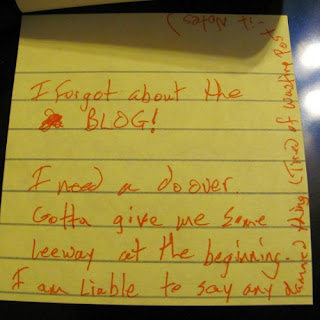 I forgot about the
BLOG!
I need a do over.
Gotta give me some
leeway at the beginning.
I am Liable to say any
damned thing (Tired of wasting Pos
t-it notes)